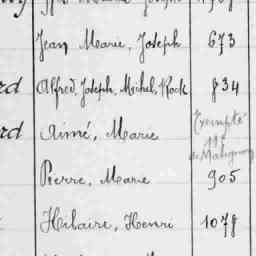 Jean Marie, Joseph 673
rd Alfred, Joseph, Michel, Rock 834
rd Aimé, Marie Exempté
de Matignon
Pierre, Marie 905
Hilaire, Henri 1078